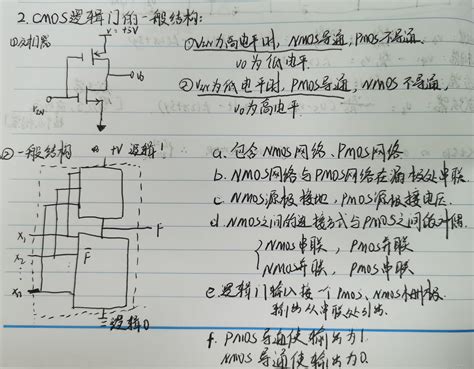 2. CMOS逻辑门的一般结构:
①反相器
V=+5V
vo
VIN
①VIN为高电平时, NMOS导通, PMOS不导通.
vo为低电平.
②VIN为低电平时, PMOS导通, NMOS不导通,
vo为高电平.
②一般结构
+V 逻辑1
F
F̄
X1
X2
Xn
逻辑0
a. 包含NMOS网络、PMOS网络
b. NMOS网络与PMOS网络在漏极处串联
c. NMOS源极接地, PMOS源极接电压.
d. NMOS之间的连接方式与PMOS之间的对偶.
NMOS串联, PMOS并联
NMOS并联, PMOS串联
e. 逻辑门输入接一个PMOS、NMOS栅极
输出从串联处引出.
f. PMOS导通使输出为1.
NMOS导通使输出为0.